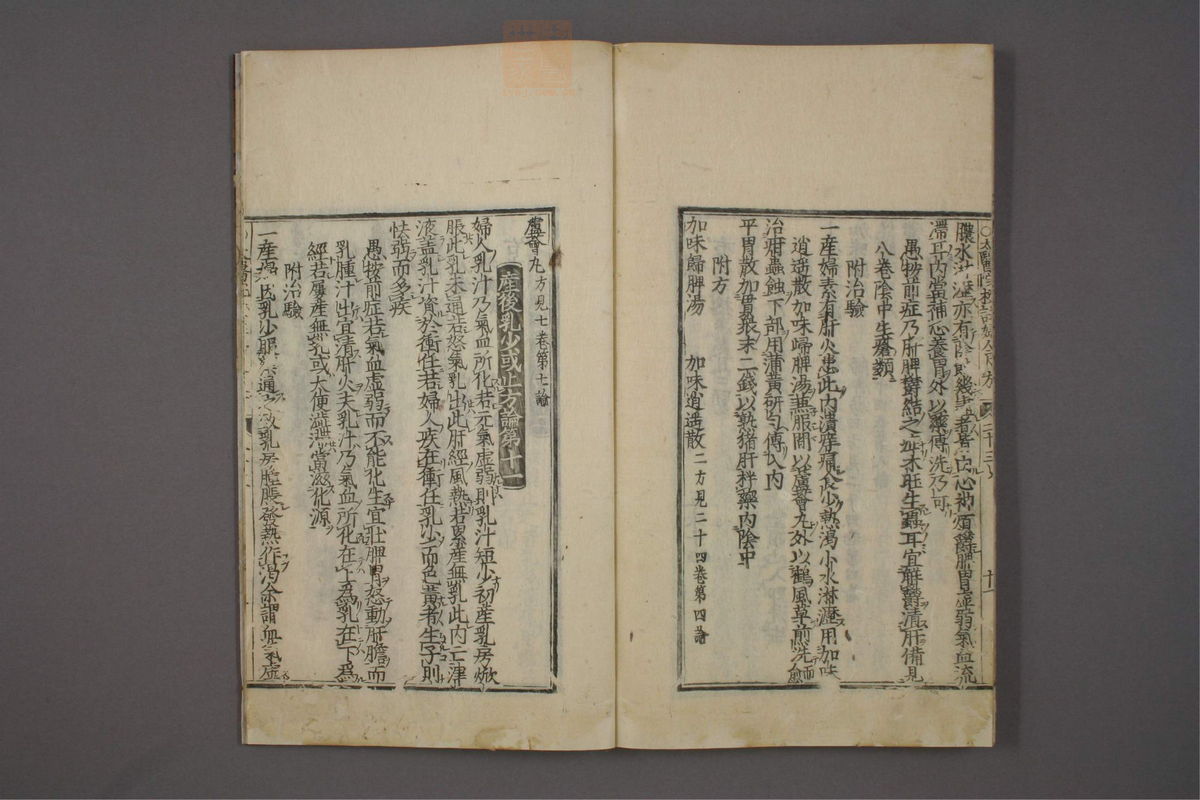 膿水淋瀝亦有陰蝕幾死者皆由心神煩鬱脾胃虛弱氣血流
滯耳内當補心養胃外以藥傅洗乃可
愚按前症乃肝脾鬱結之症木旺生蟲耳宜解鬱清肝備見
八卷陰中生瘡類
附治驗
一産婦素有肝火患此内潰痒痛食少熱渴小水淋瀝用加味
逍遥散加味歸脾湯兼服間以蘆薈九外以鶴虱草煎洗而愈
治疳蟲蝕下部用蒲黄研勻傅入内
平胃散加貫衆末二錢以熟猪肝拌藥内陰中
附方
加味歸脾湯 加味逍遥散二方見二十四卷第四論
蘆薈九方見七卷第七論
産後乳少或止方論第十一
婦人乳汁乃氣血所化若元氣虛弱則乳汁短少初産乳房焮
脹此乳未通若怒氣乳出此肝經風熱若累産無乳此内亡津
液盖乳汁資於衝任若婦人疾在衝任乳少而色黄者生子則
怯弱而多疾
愚按前症若氣血虛弱而不能化生宜壯脾胃怒動肝膽而
乳腫汁出宜清肝火夫乳汁乃氣血所化在上爲乳在下爲
經若屢産無乳或大便澁滯當滋化源
附治驗
一産婦 氏乳少服 通 乳房腫脹發熱作渴余謂 氣 虛